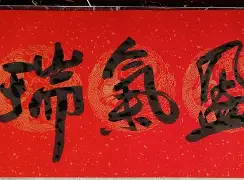 瑞氣盈